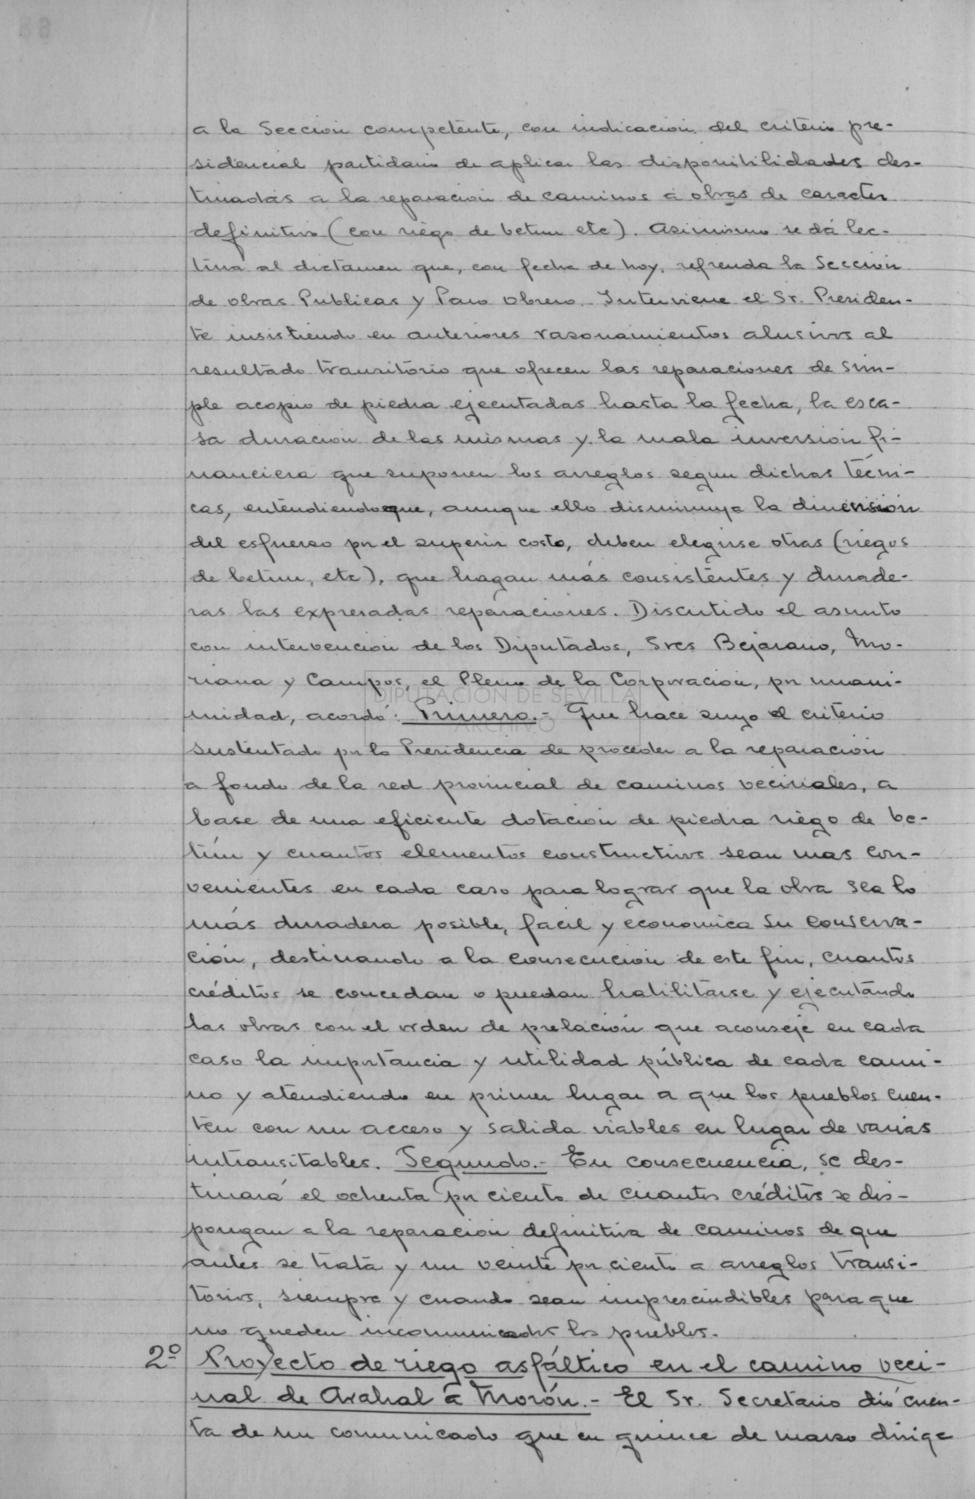 a la Sección competente, con indicación del criterio pre-
sidencial partidario de aplicar las disponibilidades des-
tinadas a la reparación de caminos a obras de caracter
definitivo (con riego de betun etc). Asimismo se dá lec-
tura al dictamen que, con fecha de hoy, refrenda la Sección
de obras Publicas y Paro Obrero. Interviene el Sr. Presiden-
te insistiendo en anteriores rasonamientos alusivos al
resultado transitório que ofrecen las reparaciones de sim-
ple acopio de piedra ejecutadas hasta la fecha, la esca-
sa duración de las mismas y la mala inversión fi-
nanciera que suponen los arreglos segun dichas técni-
cas, entendiendo que, aunque ello disminuya la dimensión
del esfuerzo por el superior costo, deben elegirse otras (riegos
de betun, etc), que hagan más consistentes y durade-
ras las expresadas reparaciones. Discutido el asunto
con intervención de los Diputados, Sres Bejarano, Mo-
riana y Campos, el Pleno de la Corporación, por unani-
midad, acordó: Primero.- Que hace suyo el criterio
sustentado por la Presidencia de proceder a la reparación
a fondo de la red provincial de caminos vecinales, a
base de una eficiente dotación de piedra riego de be-
tún y cuantos elementos constructivos sean mas con-
venientes en cada caso para lograr que la obra sea lo
más duradera posible, facil y economica su conserva-
ción, destinando a la consecución de este fin, cuantos
créditos se concedan o puedan habilitarse y ejecutándo
las obras con el orden de prelación que aconseje en cada
caso la importancia y utilidad pública de cada cami-
no y atendiendo en primer lugar a que los pueblos cuen-
ten con un acceso y salida viables en lugar de varias
intransitables. Segundo.- En consecuencia, se des-
tinará el ochenta por ciento de cuantos créditos se dis-
pongan a la reparación definitiva de caminos de que
antes se trata y un veinte por ciento a arreglos transi-
torios, siempre y cuando sean imprescindibles para que
no queden incomunicados los pueblos.
2º Proyecto de riego asfáltico en el camino veci-
nal de Arahal a Morón.- El Sr. Secretario dió cuen-
ta de un comunicado que en quince de marzo dirige
DIPUTACIÓN DE SEVILLA
ARCHIVO